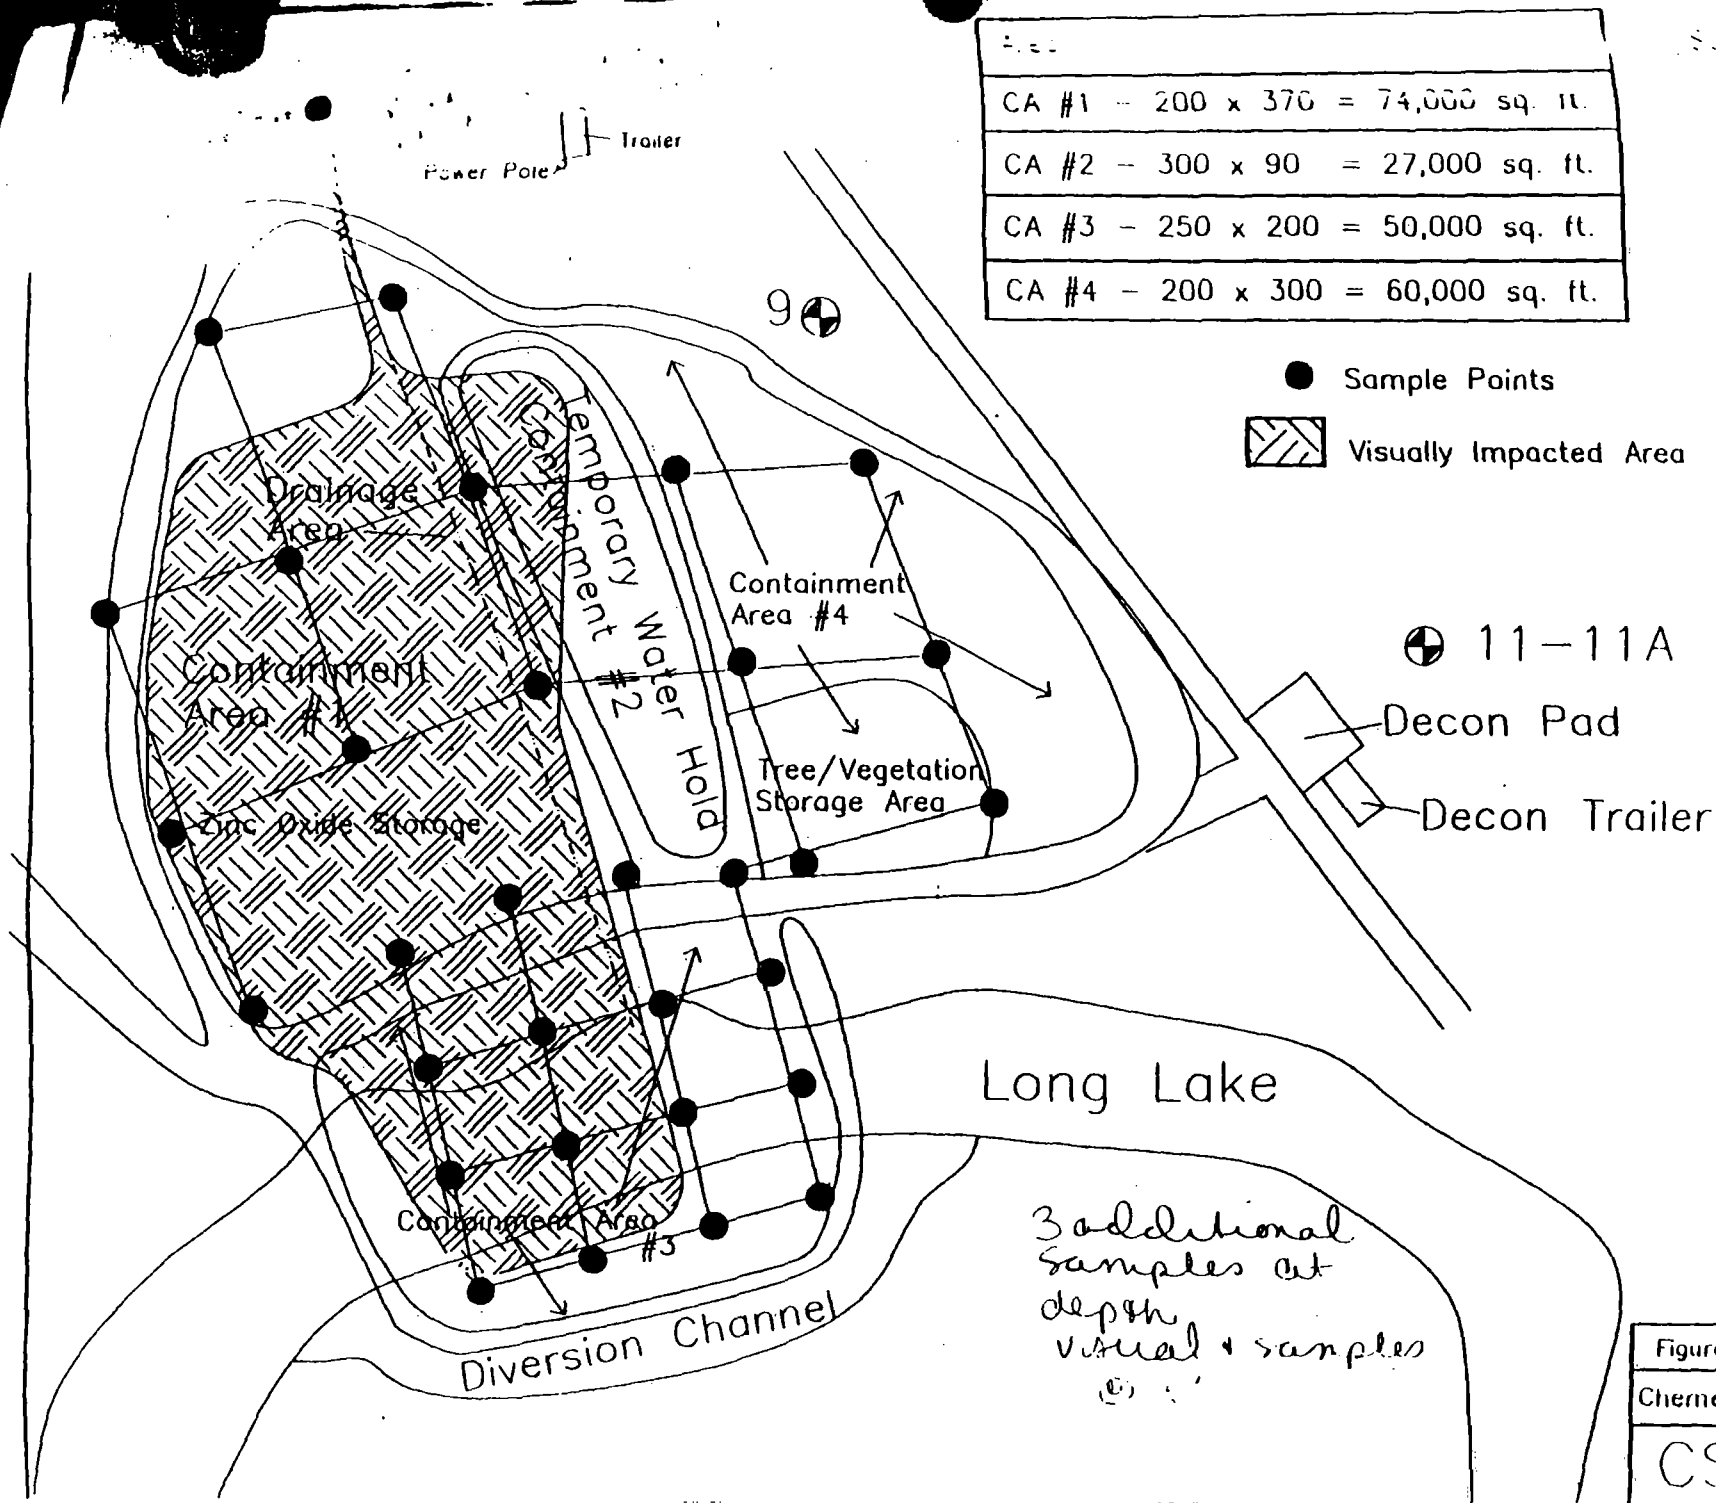 CA #1 - 200 x 370 = 74,000 sq. ft.
CA #2 - 300 x 90 = 27,000 sq. ft.
CA #3 - 250 x 200 = 50,000 sq. ft.
CA #4 - 200 x 300 = 60,000 sq. ft.
Trailer
Power Pole
9
Sample Points
Visually Impacted Area
Temporary Water Hold
Containment #2
Drainage
Area
Containment
Area #4
11-11A
Containment
Area #1
Decon Pad
Tree/Vegetation
Storage Area
Decon Trailer
Zinc Oxide Storage
Long Lake
Containment Area
#3
Diversion Channel
3 additional
samples at
depth
visual & samples
Figur
Cheme
CS